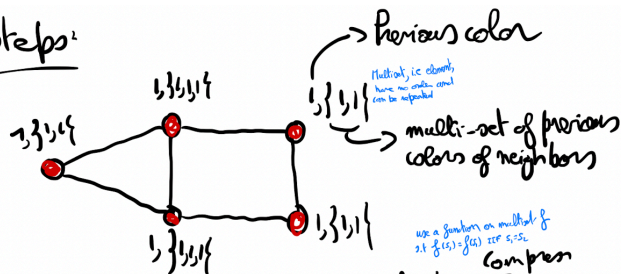 Steps:
Previous color
1,{1,1,1}
1,{1,1}
Multiset, i.e element,
have no order and
can be repeated
1,{1,1}
multi-set of previous
colors of neighbors
1,{1,1}
1,{1,1,1}
use a function on multiset f
s.t f(s₁)=f(s₂) IIF s₁=s₂
compress